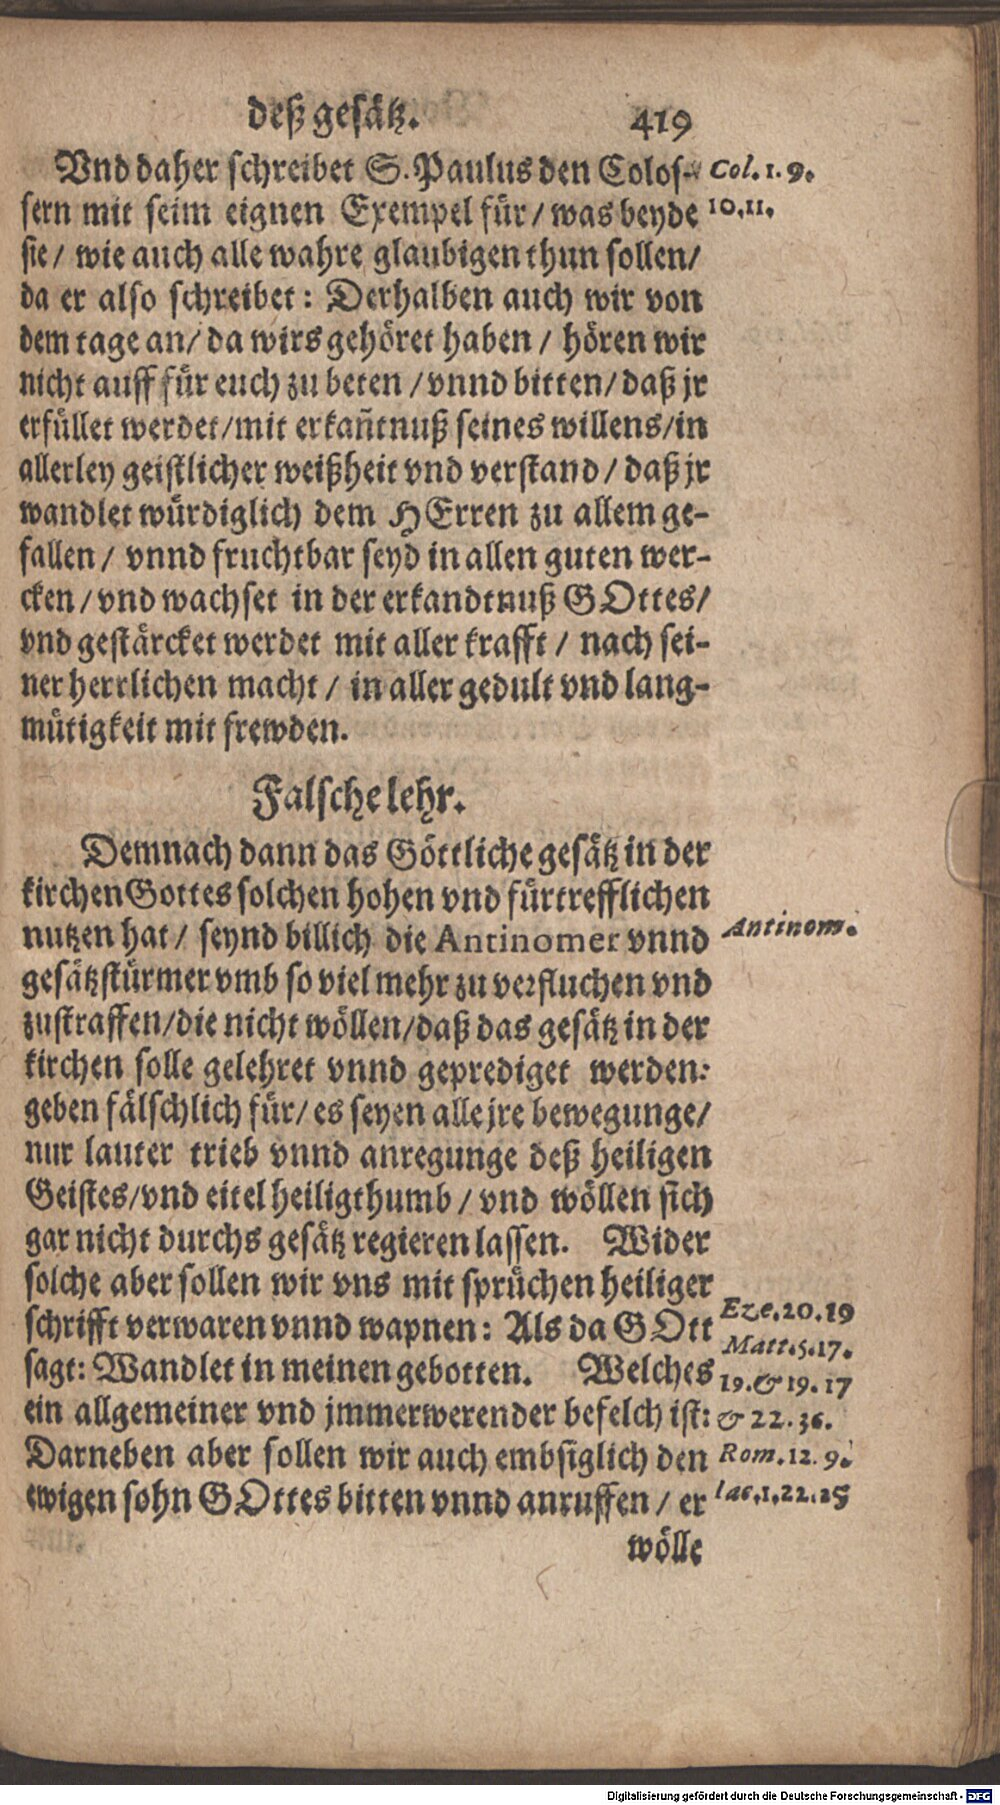 deß gesätz. 419
Vnd daher schreibet S. Paulus den Colos- Col. 1. 9.
sern mit seim eignen Exempel für / was beyde 10. 11.
sie / wie auch alle wahre glaubigen thun sollen /
da er also schreibet: Derhalben auch wir von
dem tage an / da wirs gehöret haben / hören wir
nicht auff für euch zu beten / vnnd bitten / daß jr
erfüllet werdet / mit erkañtnuß seines willens / in
allerley geistlicher weißheit vnd verstand / daß jr
wandlet würdiglich dem HErren zu allem ge-
fallen / vnnd fruchtbar seyd in allen guten wer-
cken / vnd wachset in der erkandtnuß GOttes /
vnd gestärcket werdet mit aller krafft / nach sei-
ner herrlichen macht / in aller gedult vnd lang-
mütigkeit mit frewden.
Falsche lehr.
Demnach dann das Göttliche gesätz in der
kirchen Gottes solchen hohen vnd fürtrefflichen
nutzen hat / seynd billich die Antinomer vnnd Antinom.
gesätzstürmer vmb so viel mehr zu verfluchen vnd
zustraffen / die nicht wöllen / daß das gesätz in der
kirchen solle gelehret vnnd geprediget werden:
geben fälschlich für / es seyen alle jre bewegunge /
nur lauter trieb vnnd anregunge deß heiligen
Geistes / vnd eitel heiligthumb / vnd wöllen sich
gar nicht durchs gesätz regieren lassen. Wider
solche aber sollen wir vns mit sprüchen heiliger
schrifft verwaren vnnd wapnen: Als da GOtt Eze. 20. 19
sagt: Wandlet in meinen gebotten. Welches Matt. 5. 17.
19. & 19. 17
ein allgemeiner vnd jmmerwerender befelch ist: & 22. 36.
Darneben aber sollen wir auch embsiglich den Rom. 12. 9.
ewigen sohn GOttes bitten vnnd anruffen / er Iac. 1. 22. 25
wölle
Digitalisierung gefördert durch die Deutsche Forschungsgemeinschaft - DFG